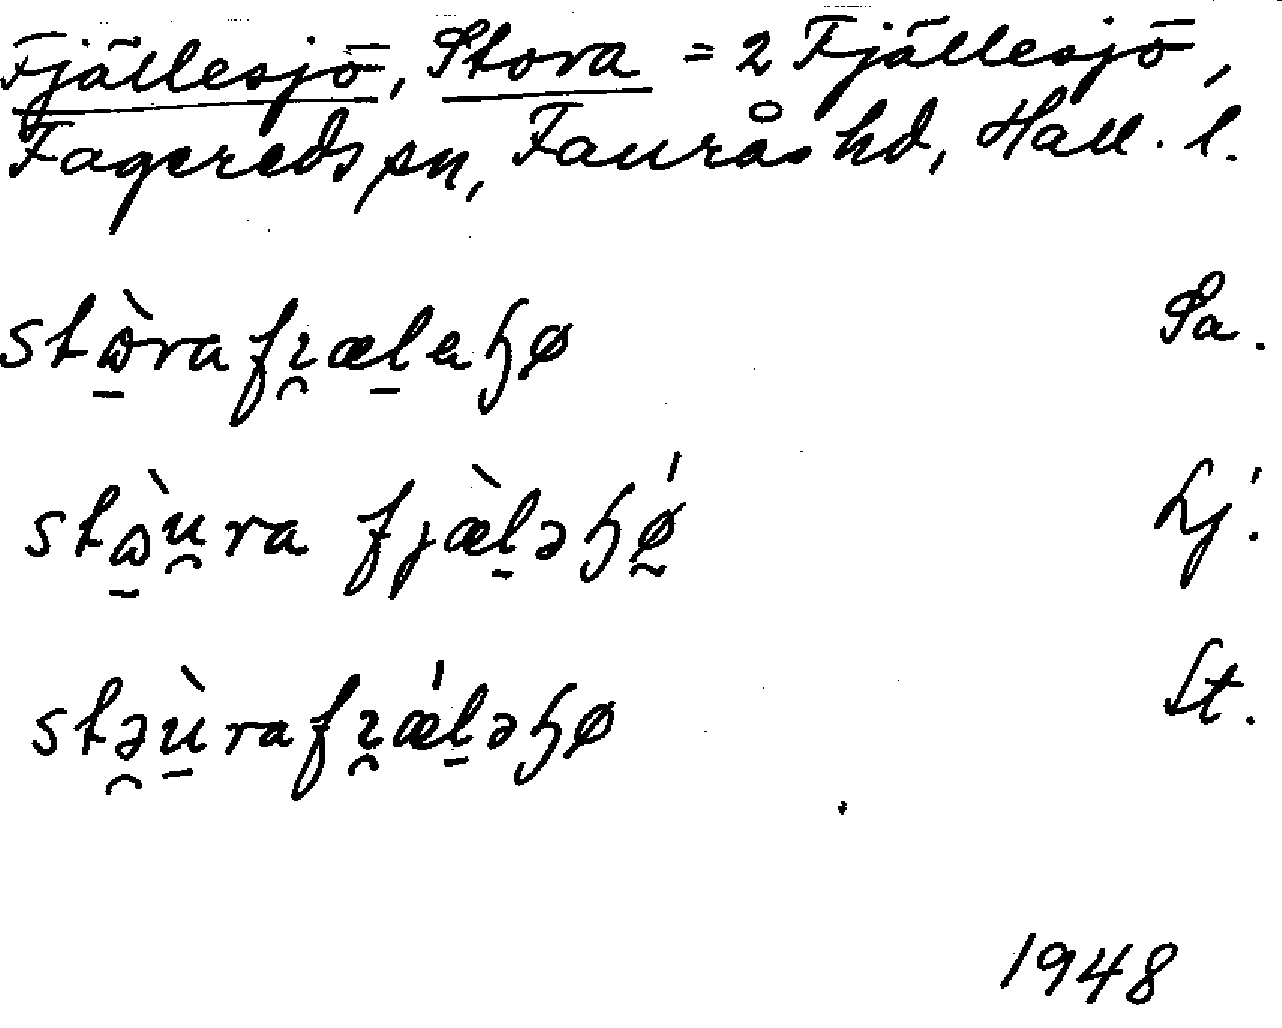 Fjällesjö, Stora = 2 Fjällesjö,
Fagereds sn, Faurås hd, Hall. l.
stὼ̱rafı̯æḻeɧø Sa.
stὼ̱u̯ra fjæ̀ḻəɧǿ̰ Lj.
stə̯ù̱rafı̯ǽḻəɧø St.
1948